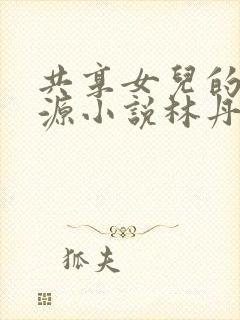 共享女兒的
源小說林丹
狐夫